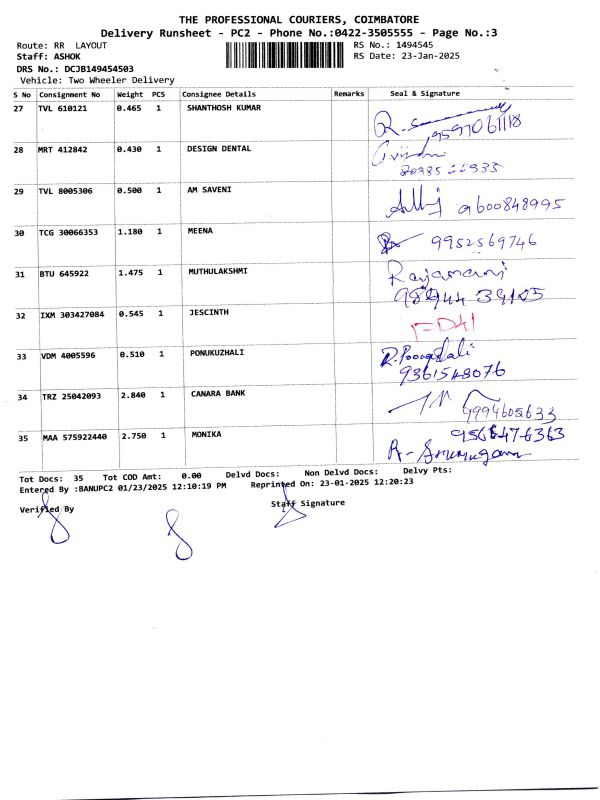 THE PROFESSIONAL COURIERS, COIMBATORE
Delivery Runsheet - PC2 - Phone No.:0422-3505555 - Page No.:3
Route: RR LAYOUT
RS No.: 1494545
Staff: ASHOK
RS Date: 23-Jan-2025
DRS No.: DCJB149454503
Vehicle: Two Wheeler Delivery
S No Consignment No Weight PCS Consignee Details Remarks Seal & Signature
27 TVL 610121 0.465 1 SHANTHOSH KUMAR
9597061118
28 MRT 412842 0.430 1 DESIGN DENTAL
29 TVL 8005306 0.500 1 AM SAVENI
9600848995
30 TCG 30066353 1.180 1 MEENA
9952569746
31 BTU 645922 1.475 1 MUTHULAKSHMI
Rajamani
98944 39105
32 IXM 303427084 0.545 1 JESCINTH
33 VDM 4005596 0.510 1 PONUKUZHALI
9361548076
34 TRZ 25042093 2.840 1 CANARA BANK
9994605633
35 MAA 575922440 2.750 1 MONIKA
9566476363
Tot Docs: 35 Tot COD Amt: 0.00 Delvd Docs: Non Delvd Docs: Delvy Pts:
Entered By :BANUPC2 01/23/2025 12:10:19 PM Reprinted On: 23-01-2025 12:20:23
Verified By Staff Signature